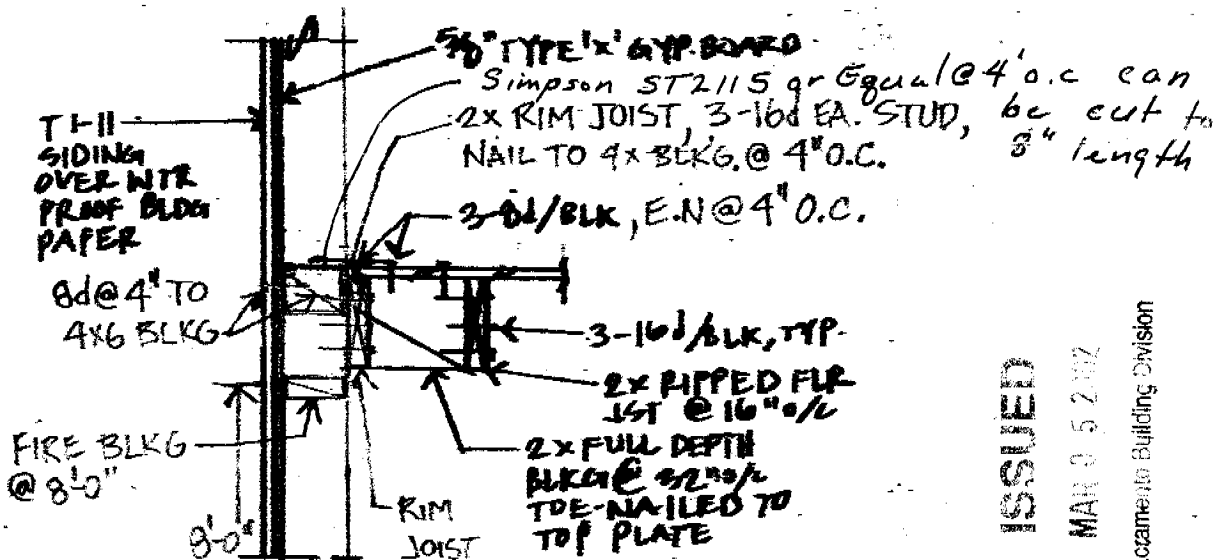 5/8" TYPE 'X' GYP. BOARD
Simpson ST2115 or Equal @ 4' o.c can
be cut to
8" length
2x RIM JOIST, 3-16d EA. STUD,
NAIL TO 4x BLKG. @ 4" O.C.
T1-11
SIDING
OVER WTR
PROOF BLDG
PAPER
3-8d/BLK, E.N @ 4" O.C.
8d @ 4" TO
4x6 BLKG
3-16d/BLK, TYP.
2x RIPPED FLR
JST @ 16" o/c
FIRE BLKG
@ 8'-0"
2x FULL DEPTH
BLKG @ 32" o/c
TOE-NAILED TO
TOP PLATE
RIM
JOIST
8'-0"
ISSUED
MAR 0 5 2002
ccamento Building Division